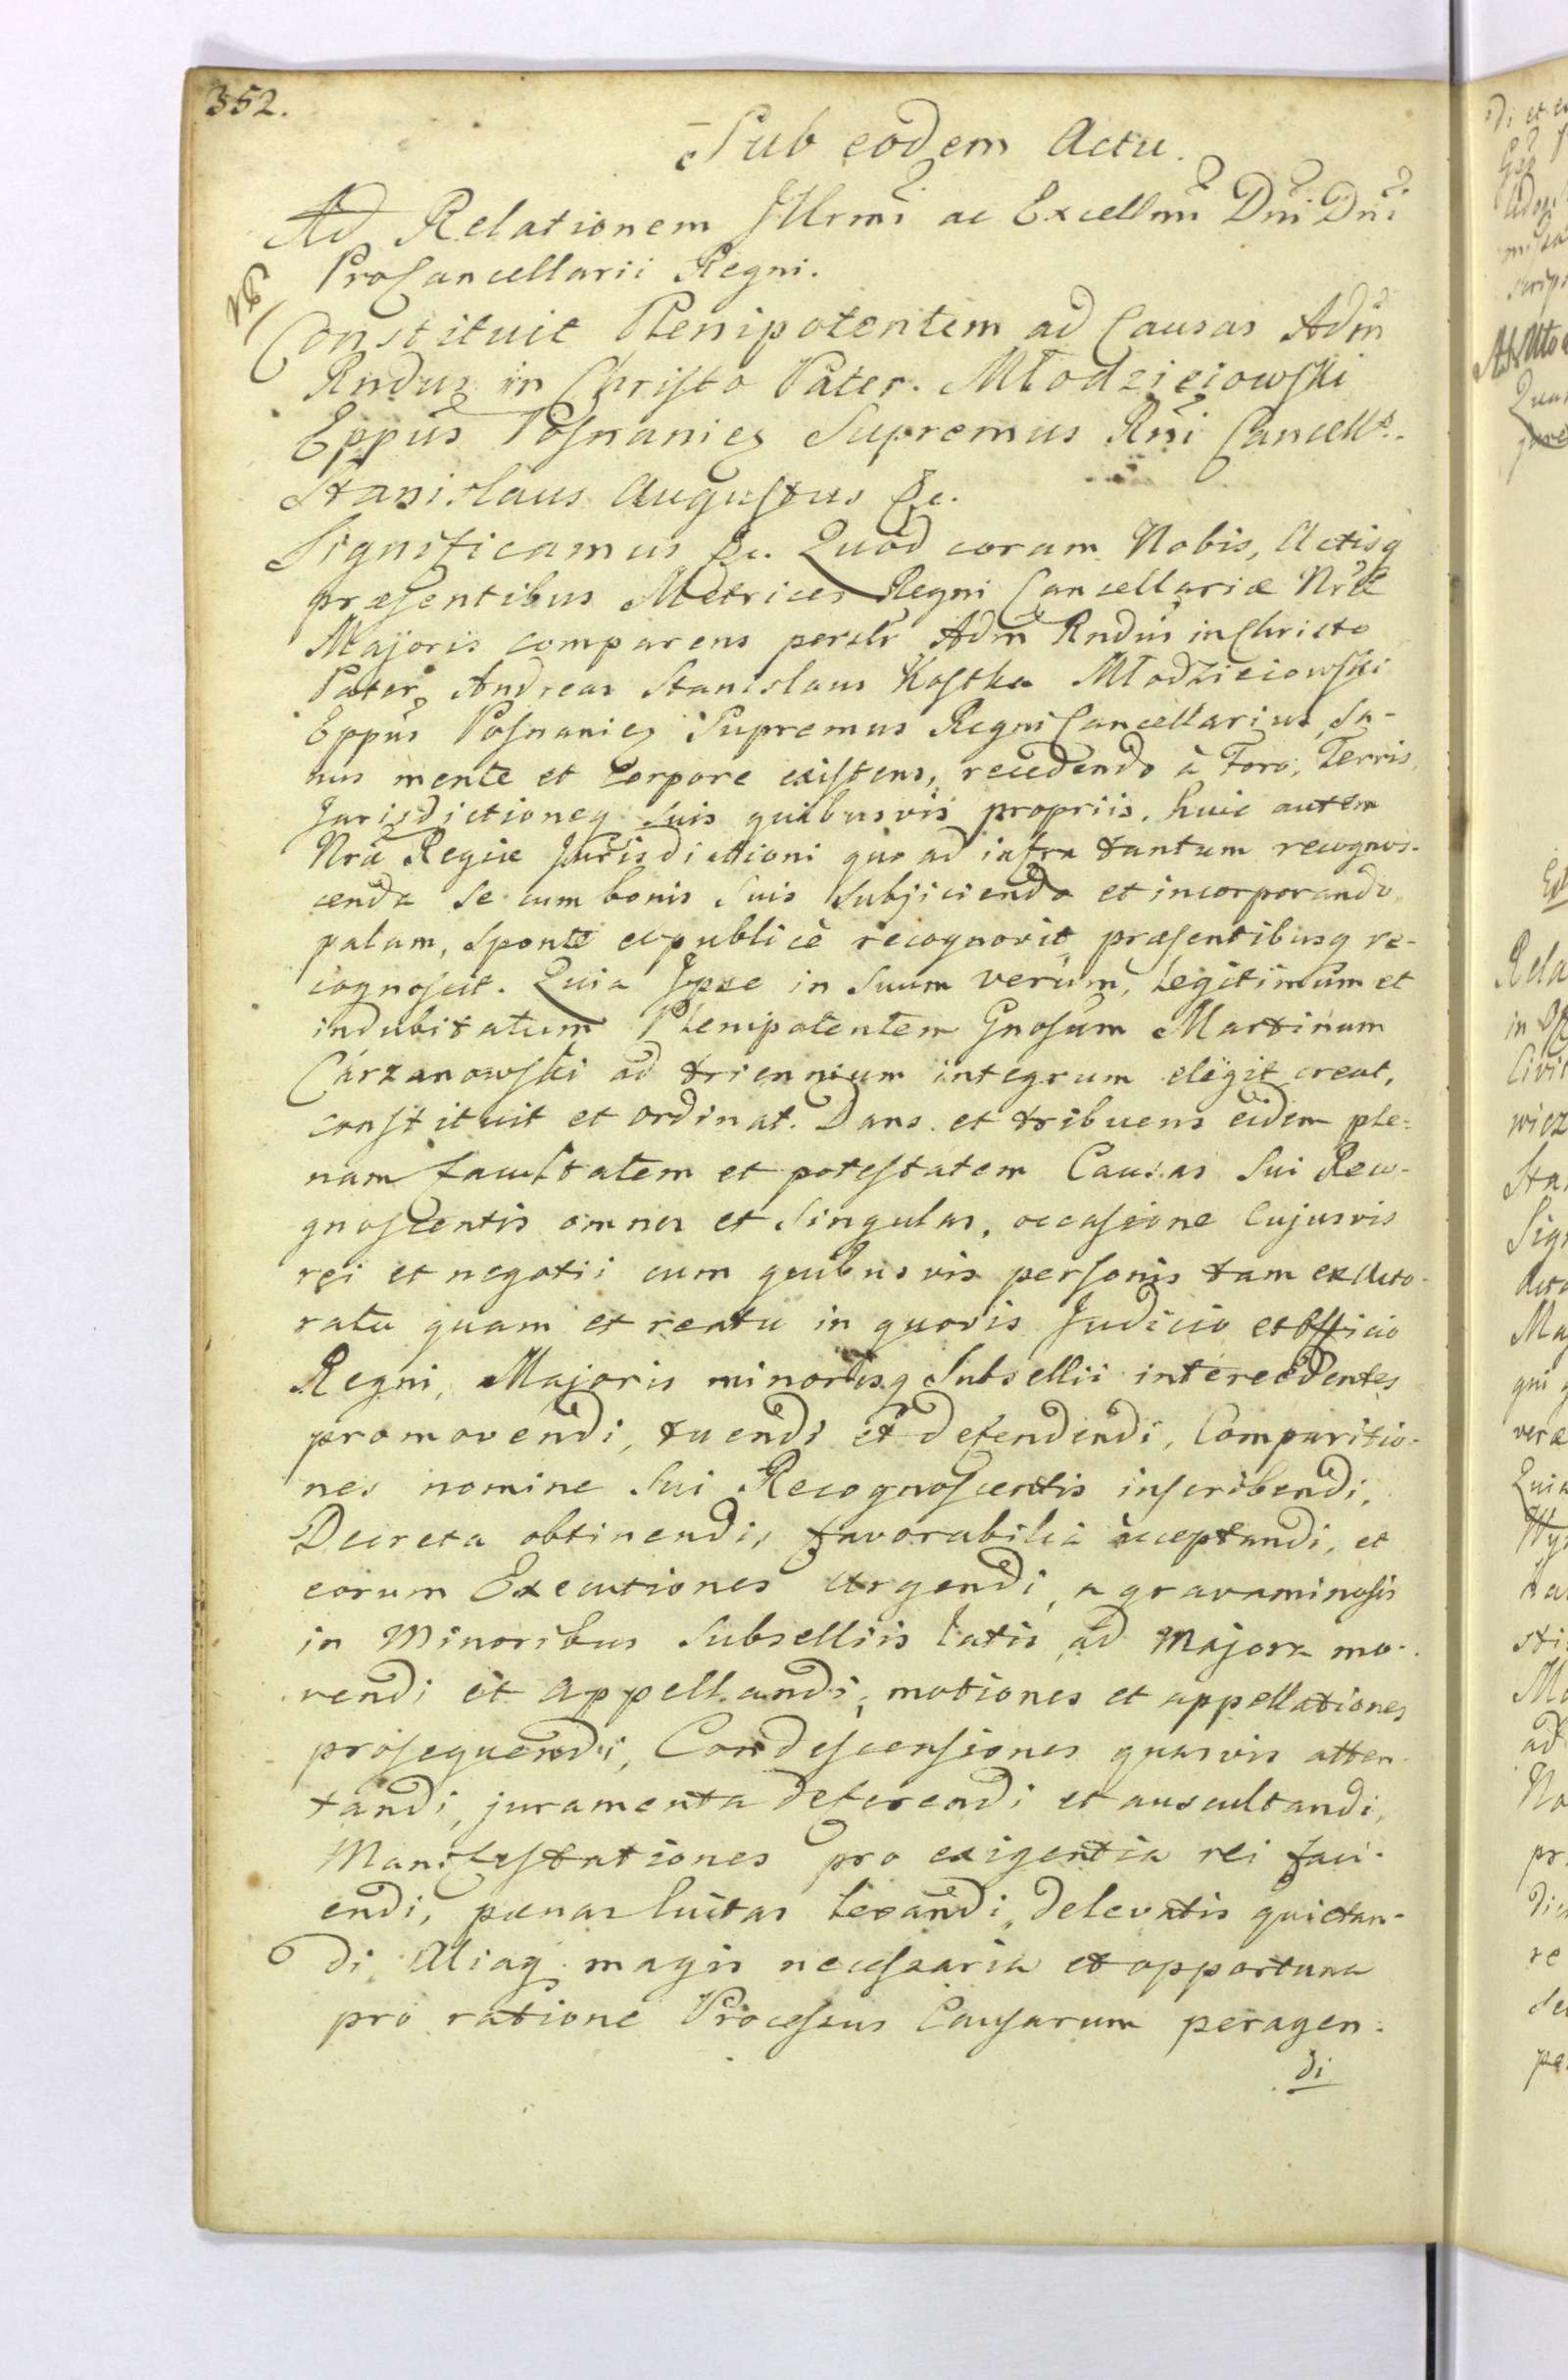 352.
Sub eodem Actu.
Ad Relationem Illrmi ac Excellmi Dni Dni
ProCancellarii Regni.
Constituit Plenipotentem ad Causas Adm
Rndus in Christo Pater. Młodzieiowski
Eppus Posnanies Supremus Rni Cancells.
Stanislaus Augustus &c.
Significamus &c. Quod coram Nobis, Actisq
præsentibus Metrices Regni Cancellariæ Nræ
Majoris comparens persltr Adm Rndus in Christo
Pater Andreas Stanislaus Kostka Młodzieiowski
Eppus Posnanies Supremus Regni Cancellarius, Sa-
nus mente et Corpore existens, recedendo à Foro, Terris,
Jurisdictioneq suis quibusvis propriis, huic autem
Nræ Regiæ Jurisdictioni quo ad infra tantum recognos-
cenda se cum bonis suis subjiciendo et incorporando,
palam, sponte ecpublicè recognovit, præsentibusq re-
cognoscit. Quia Ipse in Suum verum, Legitimum et
indubitatum Plenipotentem Gnosum Martinum
Carzanowski ad triennium integrum elegit, creat,
constituit et ordinat. Dans et tribuens eidem ple-
nam facultatem et potestatem Causas Sui Reco-
gnoscentis omnes et Singulas, occasione Cujusvis
rei et negotii cum quibusvis personis tam ex Acto-
ratu quam et reatu in quovis Judicio et officio
Regni, Majoris minorisq Subsellii intercedentes
promovendi, tuendi et defendendi, Comparitio-
nes nomine Sui Recognoscentis inscribendi,
Decreta obtinendi, favorabilia acceptandi, et
eorum Executiones urgendi, a gravaminosis
in Minoribus Subselliis latis, ad Majora mo-
vendi et appellandi, motiones et appellationes
prosequendi, Condescensiones quasvis atten-
tandi, juramenta deferendi et auscultandi,
Manifestationes pro exigentia rei faci-
endi, pænas luitas levandi, de levatis quietan-
di Aliaq magis necessaria et opportuna
pro ratione Processus Causarum peragen-
di